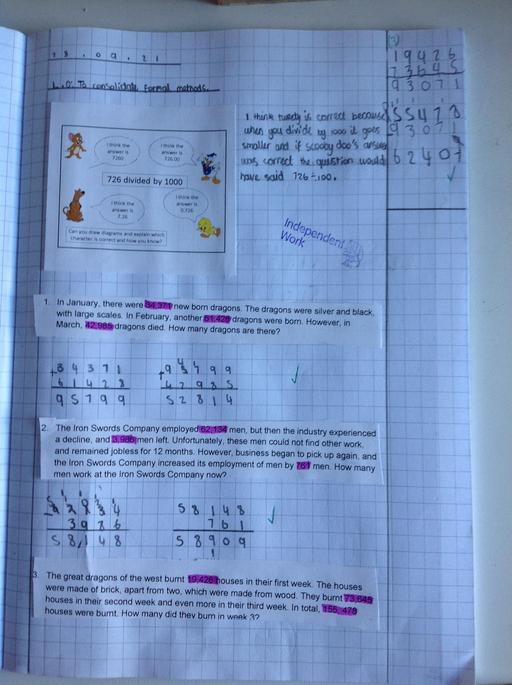 28.09.21
L.O: To consolidate formal methods.
I think the
answer is
7260
I think the
answer is
726.00
726 divided by 1000
I think the
answer is
7.26
I think the
answer is
0.726
Can you draw diagrams and explain which
character is correct and how you know?
I think tweety is correct because
when you divide by 1000 it goes
smaller and if scooby doo's answer
was correct the question would
have said 726÷100.
Independent
Work
19426
73645
93071
93071
62407
1. In January, there were 34,371 new born dragons. The dragons were silver and black,
with large scales. In February, another 61,428 dragons were born. However, in
March, 42,985 dragons died. How many dragons are there?
+34371
61428
95799
42985
52814
2. The Iron Swords Company employed 62,134 men, but then the industry experienced
a decline, and 3,986 men left. Unfortunately, these men could not find other work,
and remained jobless for 12 months. However, business began to pick up again, and
the Iron Swords Company increased its employment of men by 761 men. How many
men work at the Iron Swords Company now?
3986
58,148
58148
761
58909
3. The great dragons of the west burnt 19,426 houses in their first week. The houses
were made of brick, apart from two, which were made from wood. They burnt 73,645
houses in their second week and even more in their third week. In total, 155, 478
houses were burnt. How many did they burn in week 3?